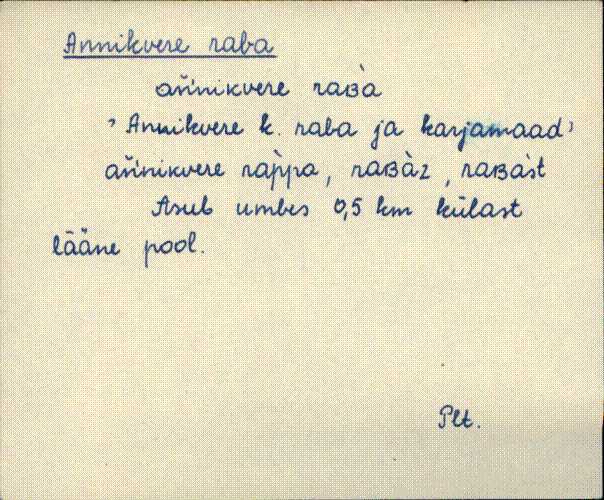 Annikvere raba
ańnikvere raʙ̀a
'Annikvere k. raba ja karjamaad'
ańnikvere rap̀pa, raʙàz, raʙàst
Asub umbes 0,5 km külast
lääne pool.
Plt.